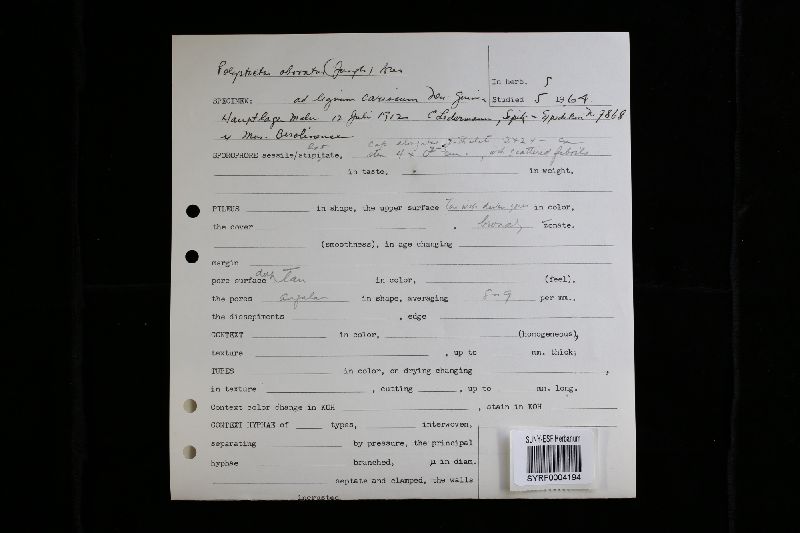 Polystictus obovatus (Jungh)
In herb. 5
SPECIMEN: ad lignum
Studied 5 1964
Hauptlager Malu 12 Juli 1912 C Ledermann, Sepik - Expedition N. 7868
v Mus. Berolinense
SPOROPHORE sessile/stipitate,
in taste, in weight,
PILEUS in shape, the upper surface in color,
the cover , broadly zonate.
(smoothness), in age changing
margin
pore surface dark Tan in color, (feel).
the pores angular in shape, averaging 8-9 per mm.,
the dissepiments , edge
CONTEXT in color, (homogeneous),
texture , up to mm. thick;
TUBES in color, on drying changing ,
in texture , cutting , up to mm. long.
Context color change in KOH , stain in KOH
CONTEXT HYPHAE of types, interwoven,
separating by pressure, the principal
hyphae branched, μ in diam.
septate and clamped, the walls
incrusted
SUNY-ESF Herbarium
SYRF0004194